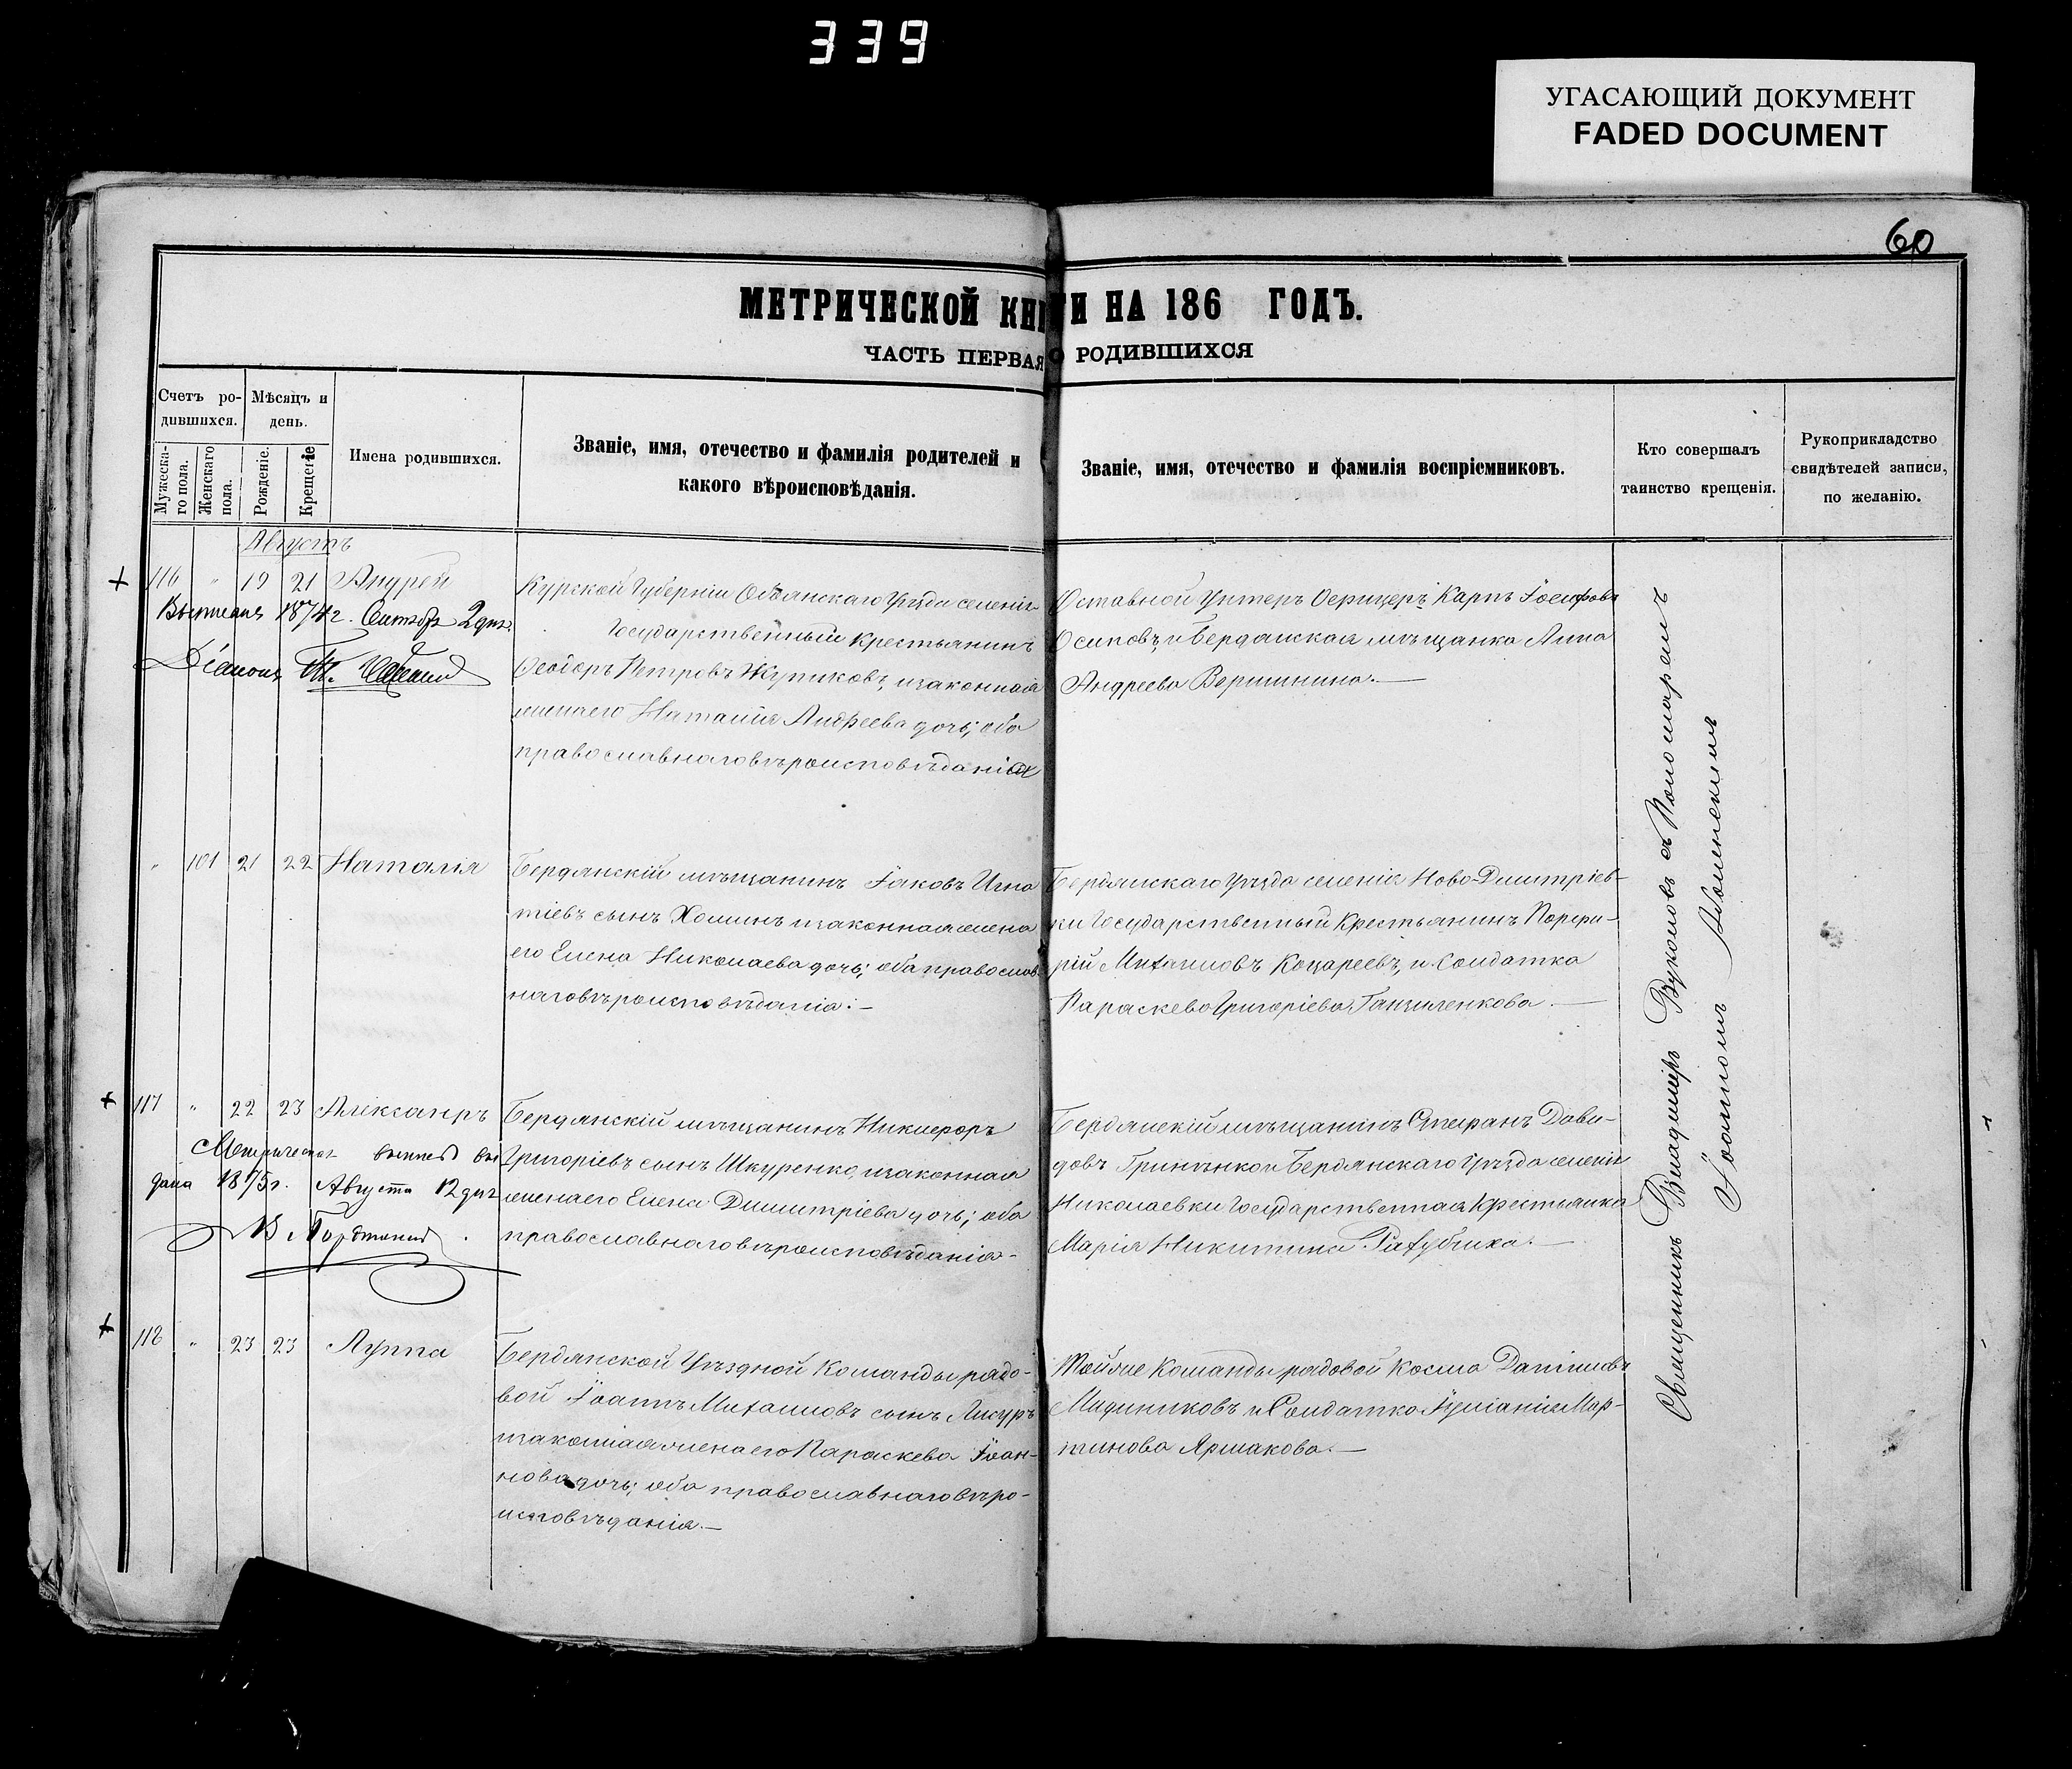 339
УГАСАЮЩИЙ ДОКУМЕНТ
FADED DOCUMENT
60
МЕТРИЧЕСКОЙ КНИГИ НА 186 ГОДЪ.
ЧАСТЬ ПЕРВАЯ О РОДИВШИХСЯ
Счетъ ро-
дившихся.
Мужеска-
го пола.
Женскаго
пола.
Мѣсяцъ и
день.
Рожденіе.
Крещеніе
Имена родившихся.
Званіе, имя, отечество и фамилія родителей и
какого вѣроисповѣданія.
Званіе, имя, отечество и фамилія воспріемниковъ.
Кто совершалъ
таинство крещенія.
Рукоприкладство
свидѣтелей записи,
по желанію.
Августъ
+ 116 " 19 21 Андрей
1874 г. 2 дня
Курской Губерніи Обоянскаго Уѣзда селенія
Государственный Крестьянинъ
Ѳеодоръ Петровъ Жупиковъ, и законная
жена его Наталія Андреева дочь; оба
православнаго вѣроисповѣданія
Отставной Унтеръ Офицеръ Карпъ Іосифовъ
Осиповъ, и Бердянская мѣщанка Анна
Андреева Вершинина.—
" 101 21 22 Наталія
Бердянскій мѣщанинъ Іаковъ Игна
тіевъ сынъ Хоминъ и законная жена
его Елена Николаева дочь; оба православ
наго вѣроисповѣданія:—
Бердянскаго Уѣзда селенія Ново-Димитріев-
ки Государственный Крестьянинъ Порфи-
рій Михаиловъ Коцаревъ, и Солдатка
Параскева Григоріева Ганжиленкова.—
+ 117 " 22 23 Александръ
Метрическая выпись вы
дана 1875 г. Августа 12 дня
Бердянскій мѣщанинъ Никифоръ
Григоріевъ сынъ Шкуренко, и законная
жена его Елена Димитріева дочь; оба
православнаго вѣроисповѣданія-
Бердянскій мѣщанинъ Стефанъ Дави-
довъ Гринѣнко и Бердянскаго Уѣзда селенія
Николаевки Государственная Крестьянка
Марія Никитина .—
+ 118 " 23 23 Луппа
Бердянской Уѣздной Команды рядо-
вой Іоаннъ Михаиловъ сынъ
и законная жена его Параскева Іоан-
нова дочь; оба православнаго вѣро-
исповѣданія.—
Той же Команды рядовой Косма Даніиловъ
и Солдатка Іуліанія Мар-
тинова Ярмакова.—
Священникъ Владиміръ Вуколовъ съ Пономаремъ
Іоанномъ